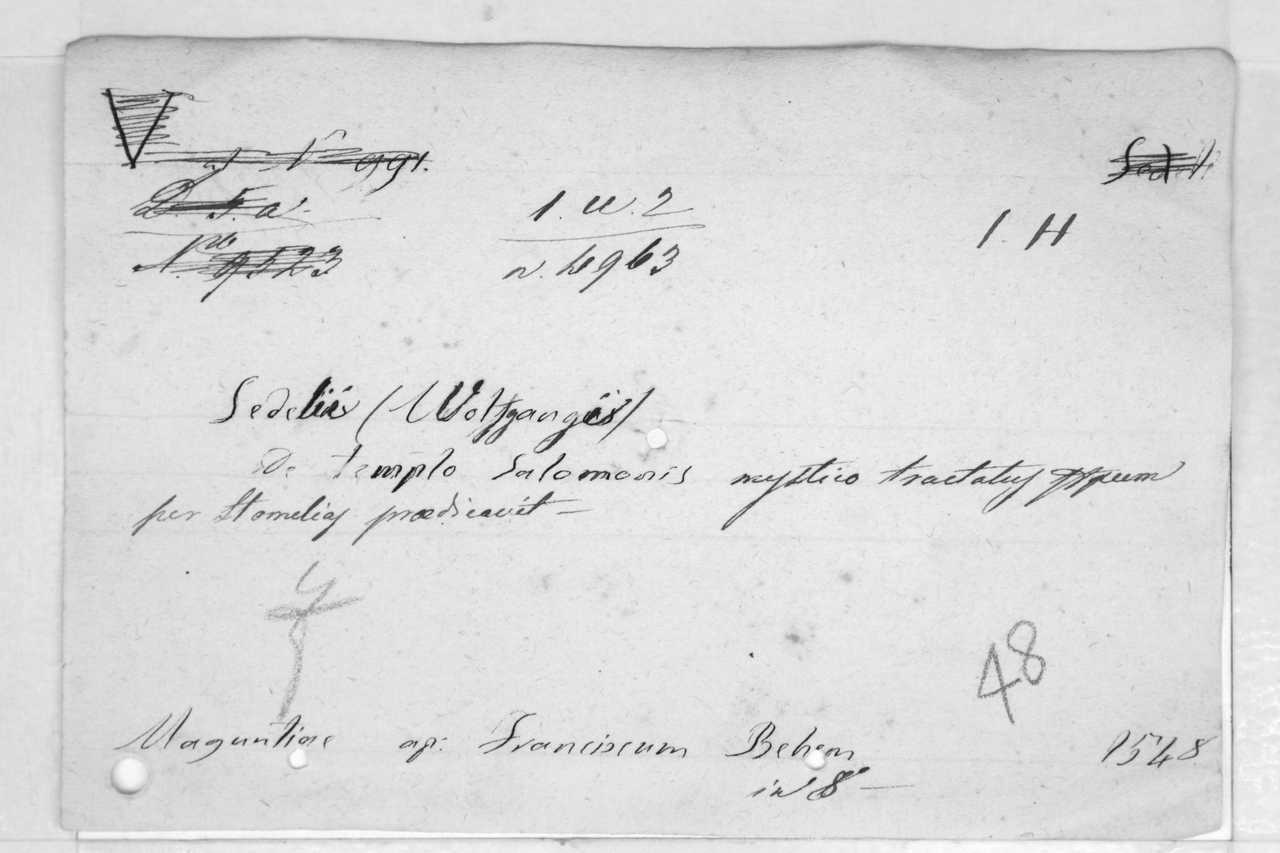 991.
D. 5. a.
N.ro 9523
1. u. 2
n. 4963
1. H
Sedelius (Wolfgangus)
De templo Salomonis mystico tractatus
per Homelias praedicavit —
48
Maguntiae ap: Franciscum Behem 1548
in 8° —